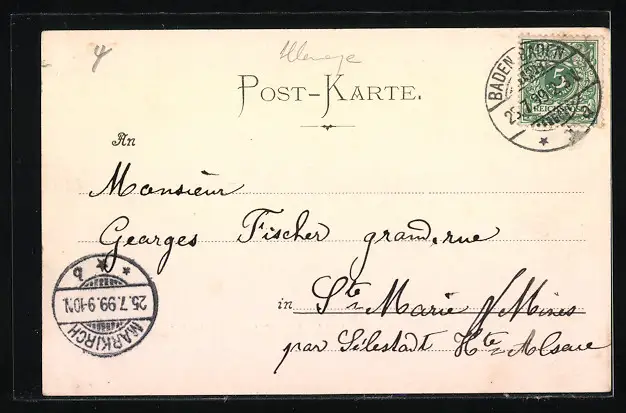 4
POST-KARTE.
BADEN-BADEN
25.7.99.
5
REICHSPOST
An
Monsieur
Georges Fischer grand rue
in Ste Marie s/Mines
par Sélestadt Hte Alsace
MARKIRCH
25.7.99.9-10N.
b